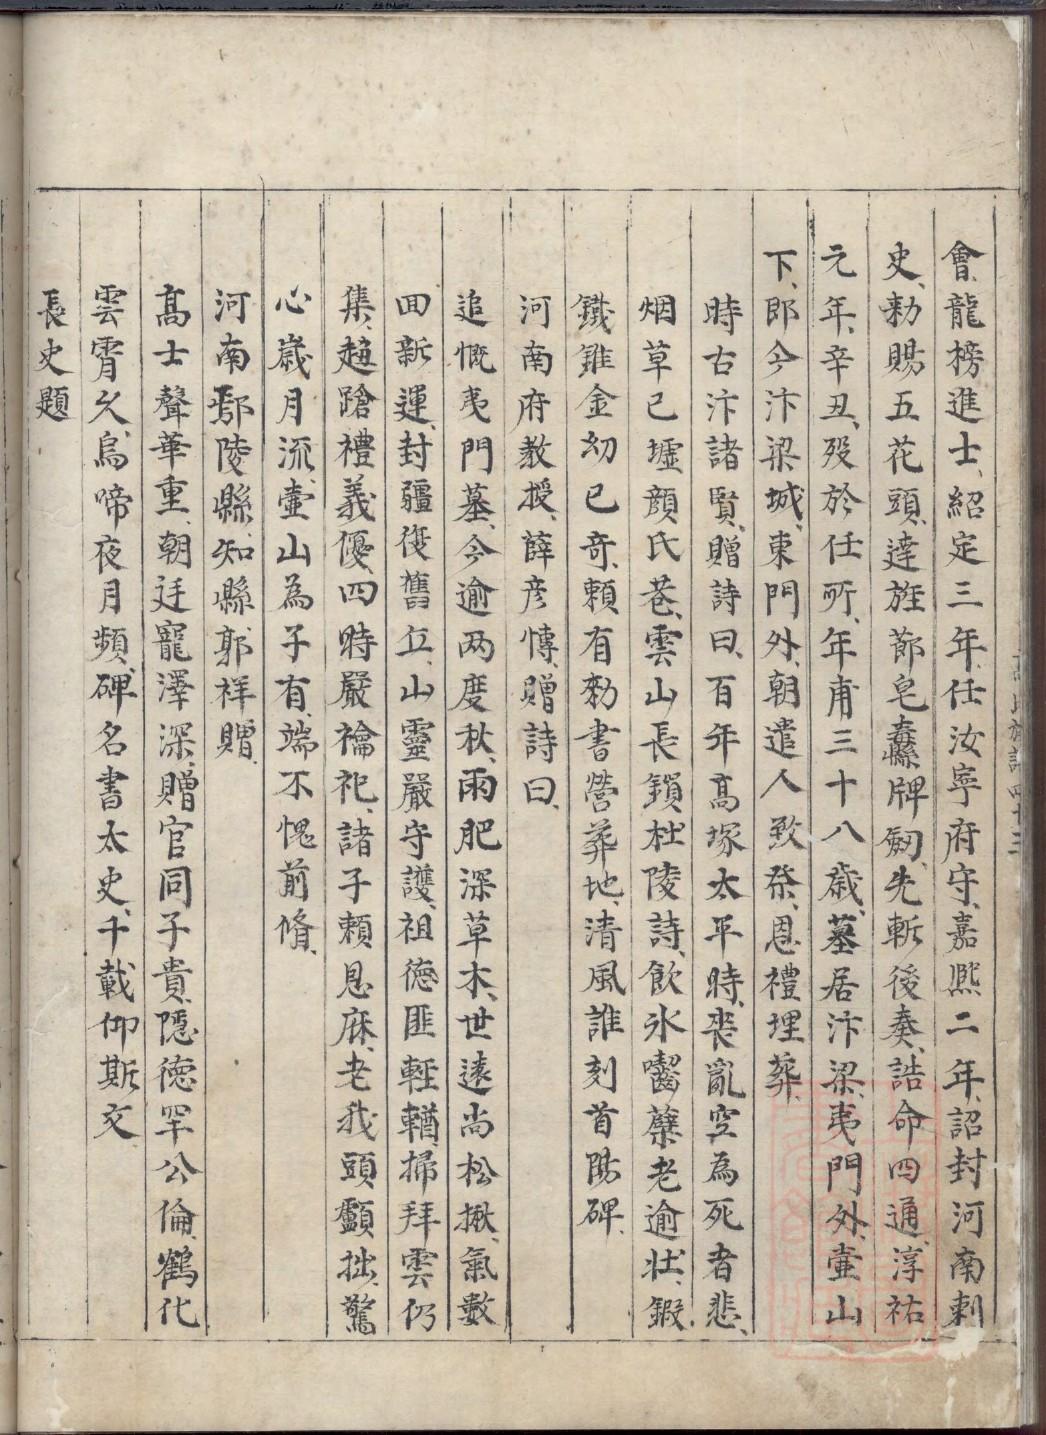 會龍榜進士、紹定三年、任汝寧府守、嘉熙二年、詔封河南刺
史、勑賜五花頭、達旌節皂纛縣牌劒、先斬後奏、誥命四通、淳祐
元年、辛丑、殁於任所、年甫三十八歲、墓居汴梁、夷門外、壷山
下、即今汴梁城、東門外、朝遣人致祭、恩禮埋葬、
時古汴諸賢、贈詩曰、百年高塚太平時、丧亂空為死者悲、
烟草已墟顔氏巷、雲山長鎖杜陵詩、飲氷囓蘗老逾壮、鍜
鐵錐金幼已奇、頼有勑書營葬地、清風誰刻首陽碑、
河南府教授、薛彦愽、贈詩曰、
追慨夷門墓、今逾两度秋、雨肥深草木、世遠尚松揪、氣數
回新運、封疆復舊丘、山靈嚴守護、祖德匪輕輶、掃拜雲仍
集、趨蹌禮義優、四時嚴禴祀、諸子頼息庥、老我頭顱拙、驚
心歲月流、壷山為子有、端不愧前脩、
河南鄢陵縣、知縣郭祥贈、
髙士聲華重、朝廷寵澤深、贈官同子貴、隱徳罕公倫、鶴化
雲霄久、烏啼夜月頻、碑名書太史、千載仰斯文、
長史題